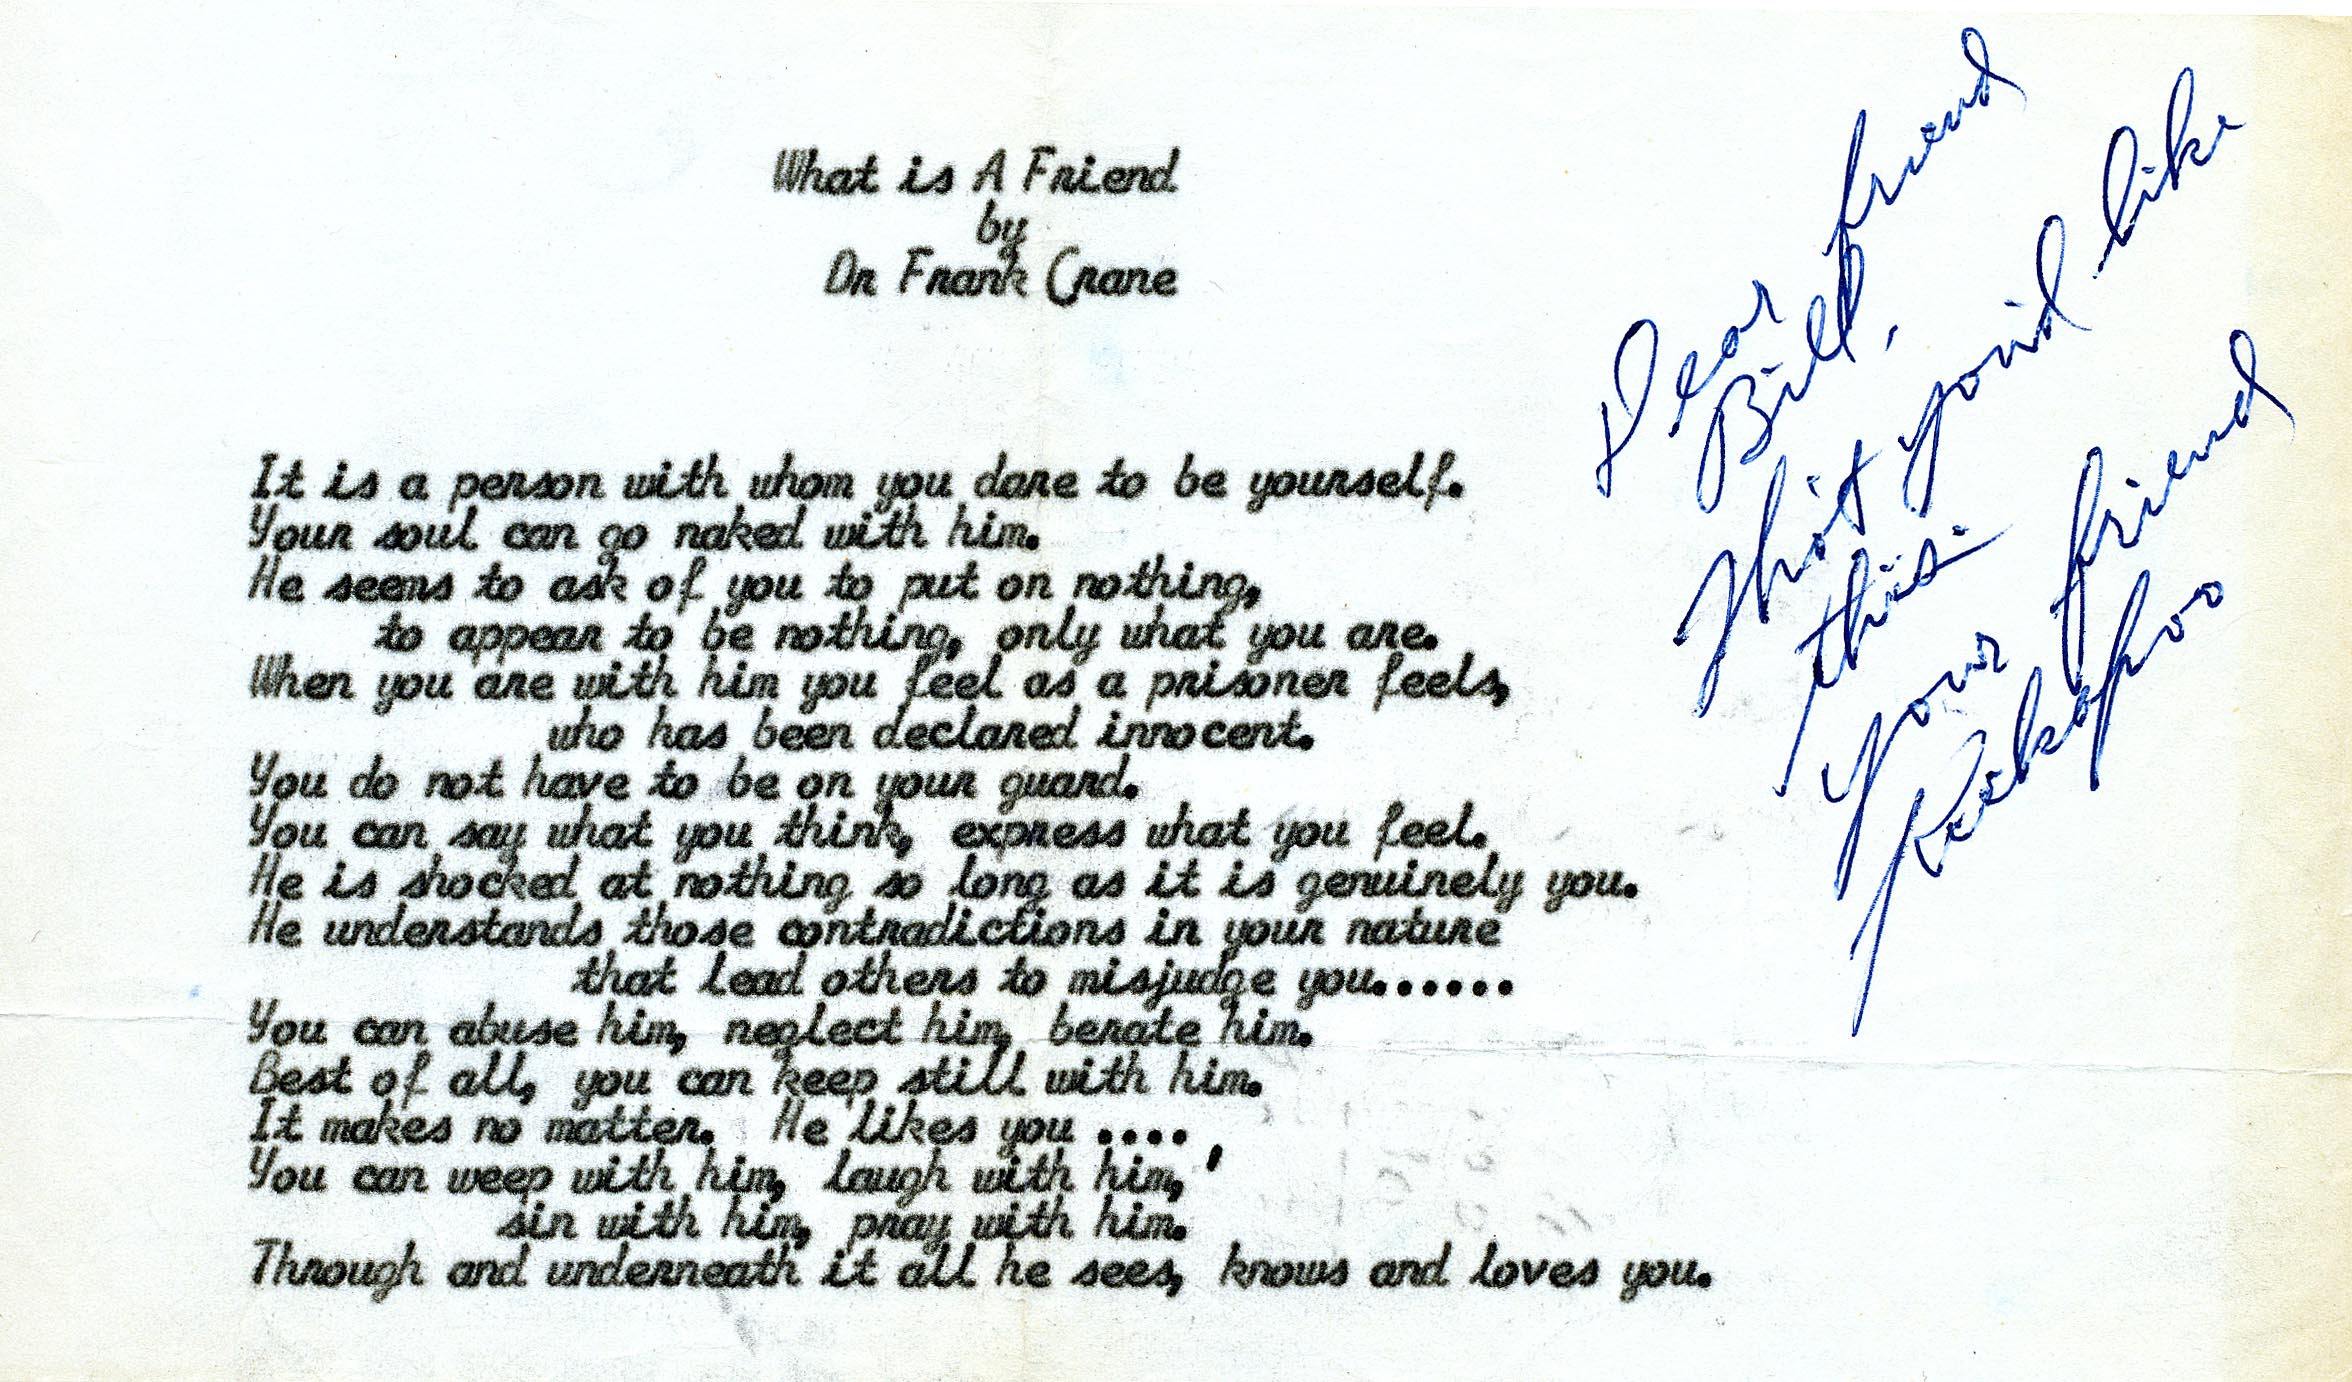 What is A Friend
by
Dr Frank Crane
It is a person with whom you dare to be yourself.
Your soul can go naked with him.
He seems to ask of you to put on nothing,
to appear to be nothing, only what you are.
When you are with him you feel as a prisoner feels,
who has been declared innocent.
You do not have to be on your guard.
You can say what you think, express what you feel.
He is shocked at nothing so long as it is genuinely you.
He understands those contradictions in your nature
that lead others to misjudge you......
You can abuse him, neglect him, berate him.
Best of all, you can keep still with him.
It makes no matter.  He likes you ....
You can weep with him, laugh with him,
sin with him, pray with him.
Through and underneath it all he sees, knows and loves you.
Dear friend
Bill,
Thot you'd like
this.
Your friend